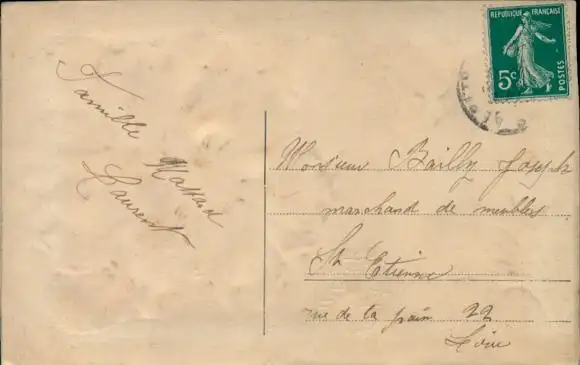 Famille Massard
Laurent
Monsieur Bailly Joseph
marchand de meubles
St Etienne
rue de la paix 22
Loire
REPUBLIQUE FRANÇAISE
5c
POSTES